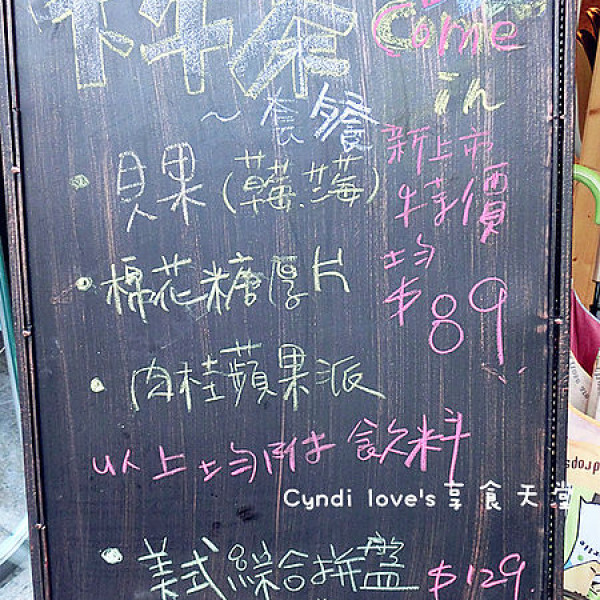 下午茶
Come
in
~套餐
新上市
特價
均
$89
•貝果(莓.莓)
•棉花糖厚片
•肉桂蘋果派
以上均附飲料
Cyndi love's享食天堂
•美式綜合拼盤 $129